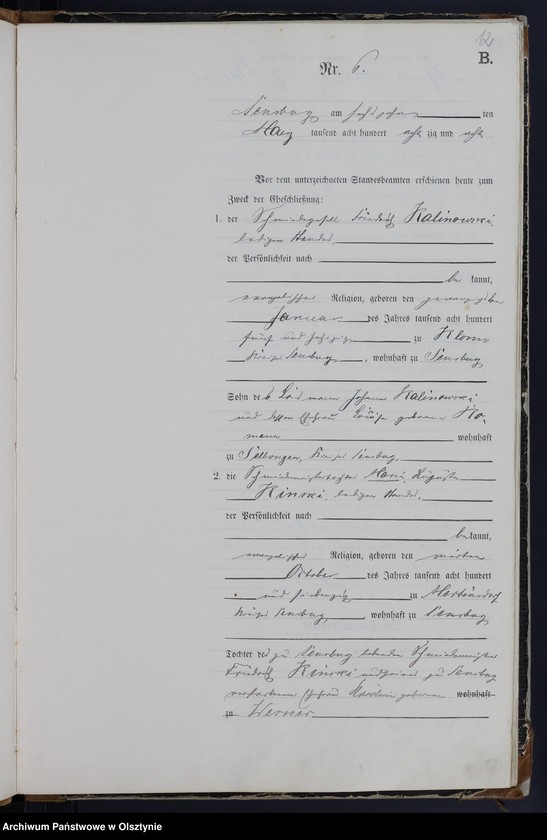 12
B.
Nr. 6.
Sensburg am sechszehn ten
Maerz tausend acht hundert acht zig und acht
Vor dem unterzeichneten Standesbeamten erschienen heute zum
Zweck der Eheschließung:
1. der Schmiedegesell Friedrich Kalinowski,
ledigen Standes,
der Persönlichkeit nach
be kannt,
evangelischer Religion, geboren den
Januar des Jahres tausend acht hundert
fünf und sechszig zu
Kreis Sensburg, wohnhaft zu Sensburg
Sohn des Losmann Johann Kalinowski
und dessen Ehefrau Louise geborene Ro-
mann wohnhaft
zu Selbongen, Kreis Sensburg,
2. die Schmiedemeistertochter Marie, Auguste
Kinski, ledigen Standes,
der Persönlichkeit nach
bekannt,
evangelischer Religion, geboren den vierten
October des Jahres tausend acht hundert
und siebenzig zu Mertinsdorf
Kreis Sensburg, wohnhaft zu Sensburg
Tochter des zu Sensburg lebenden Schmiedemeister
Friedrich Kinski und seiner zu Sensburg
verstorbenen Ehefrau Karoline geborene wohnhaft
zu Werner
Archiwum Państwowe w Olsztynie